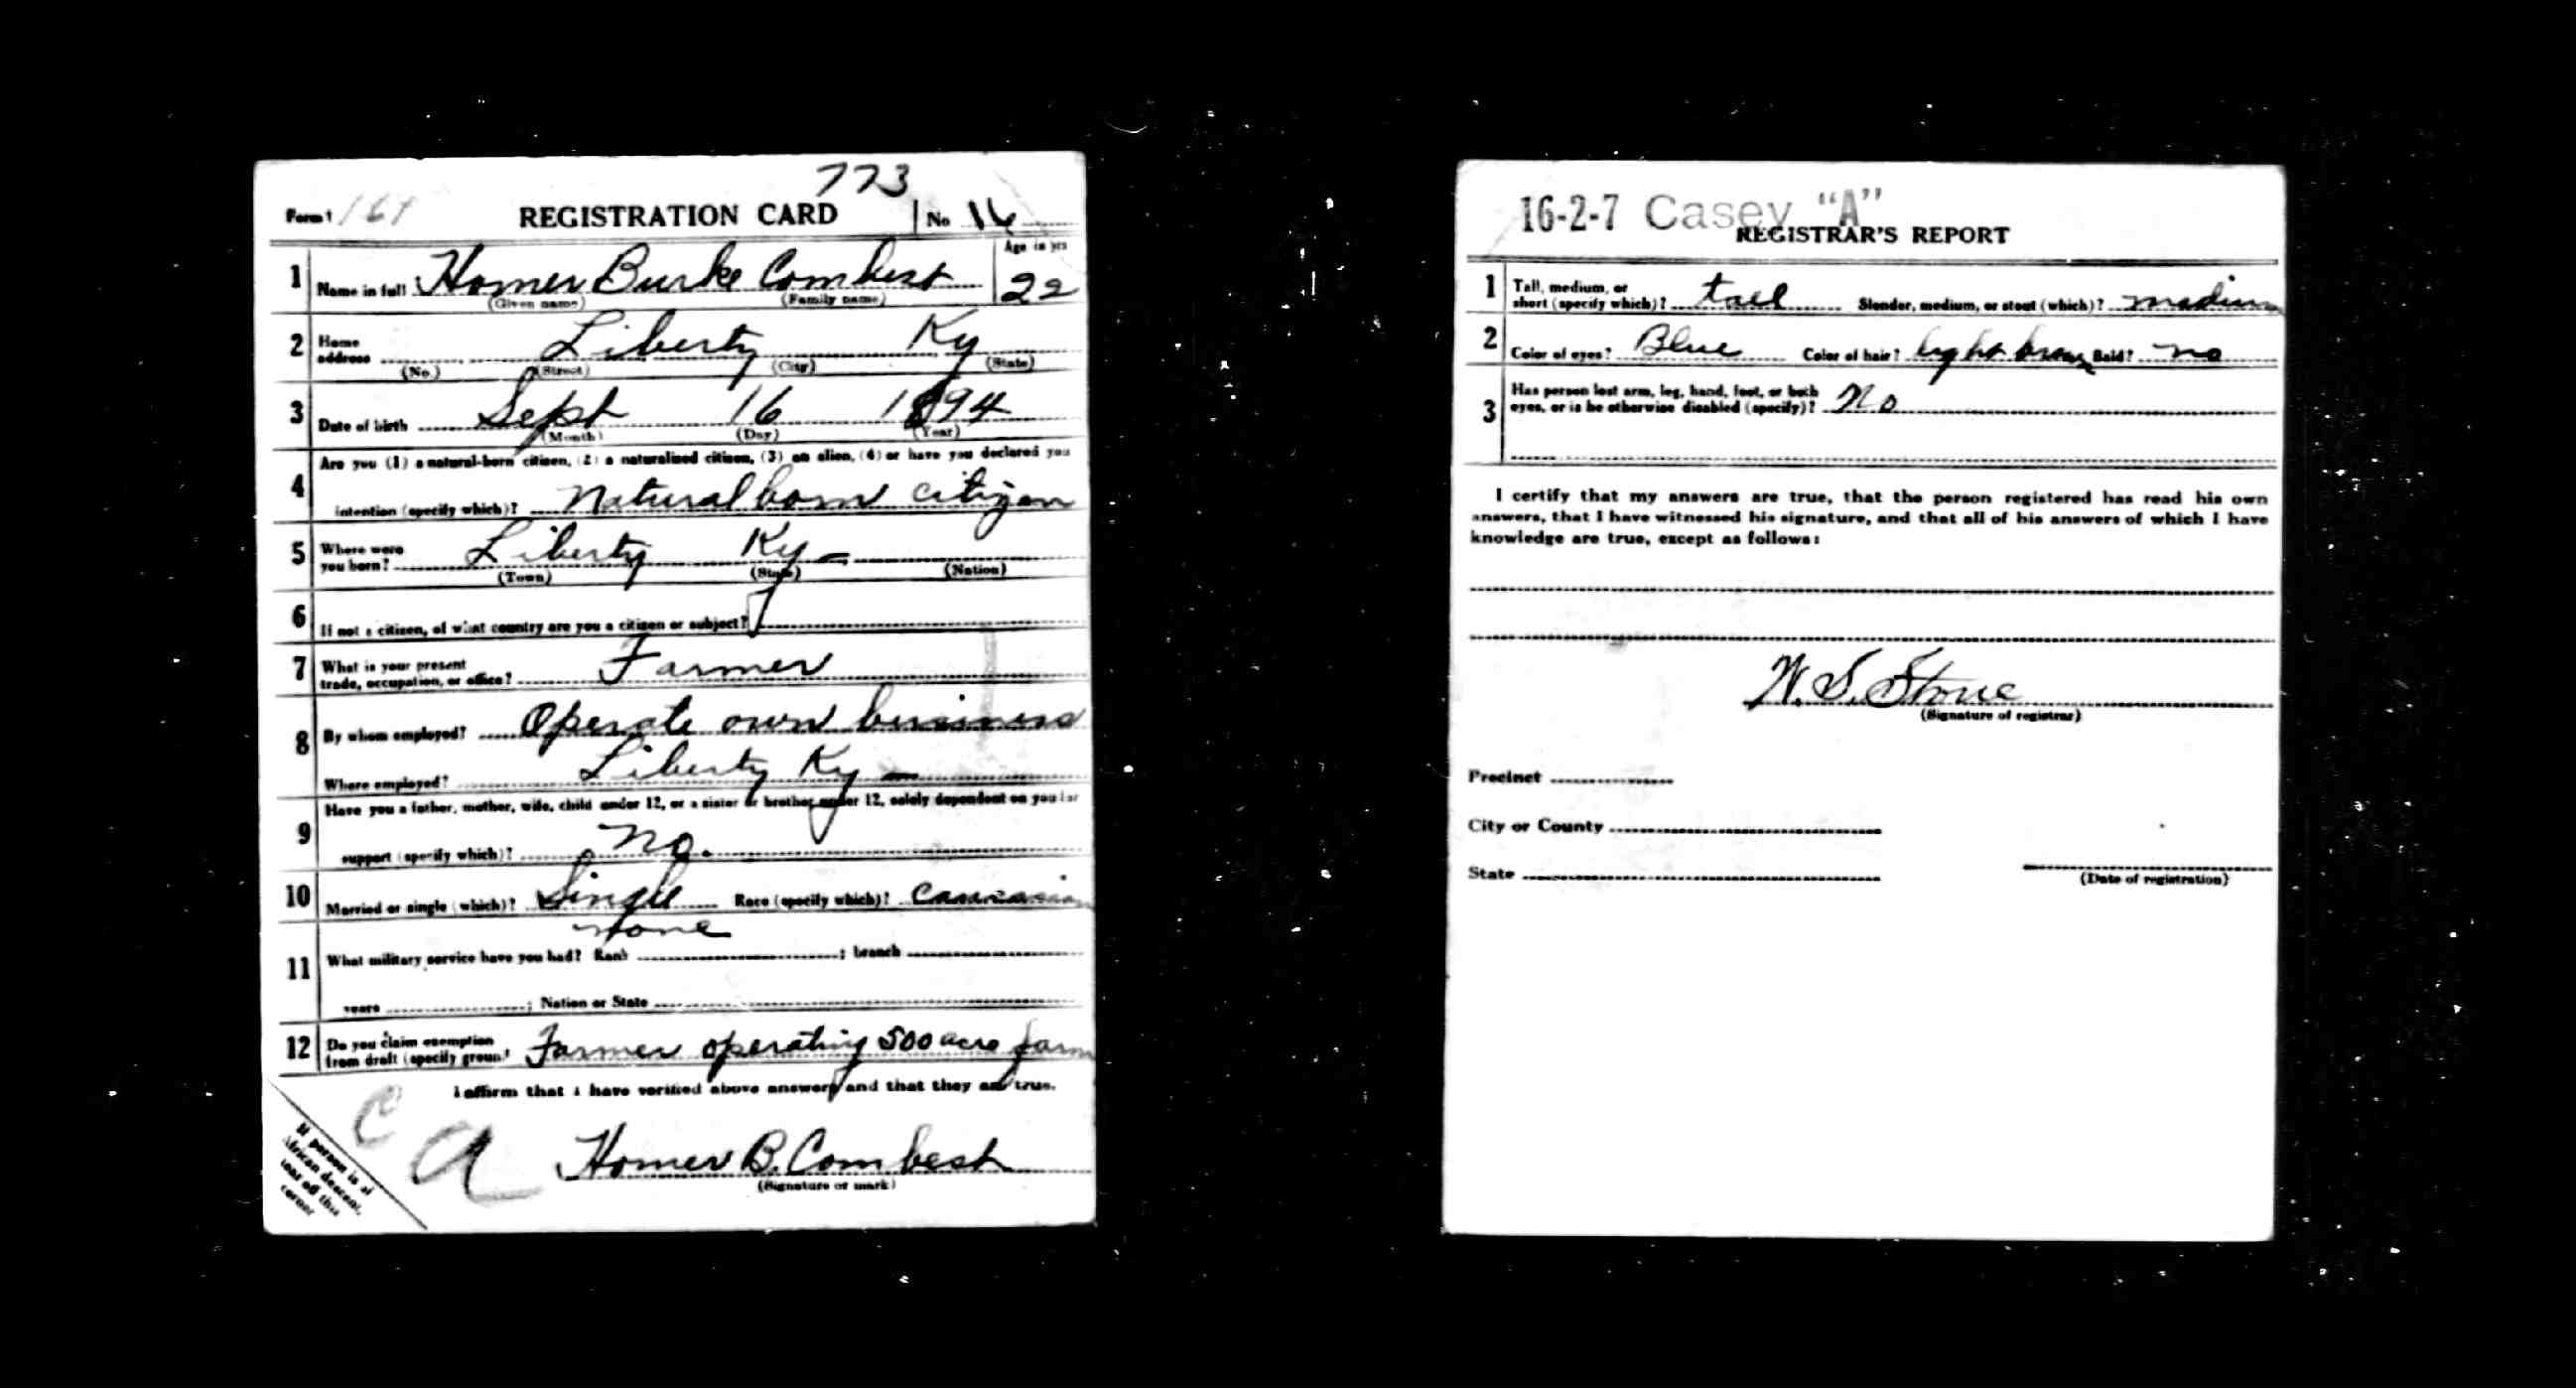 773
Form 1 164 REGISTRATION CARD No 16
1 Name in full Homer Burke Combest Age in yrs 22
(Given name) (Family name)
2 Home address Liberty Ky
(No.) (Street) (City) (State)
3 Date of birth Sept 16 1894
(Month) (Day) (Year)
4 Are you (1) a natural-born citizen, (2) a naturalized citizen, (3) an alien, (4) or have you declared you
intention (specify which)? Natural born citizen
5 Where were you born? Liberty Ky
(Town) (State) (Nation)
6 If not a citizen, of what country are you a citizen or subject?
7 What is your present
trade, occupation, or office? Farmer
8 By whom employed? Operate own business
Where employed? Liberty Ky
9 Have you a father, mother, wife, child under 12, or a sister or brother under 12, solely dependent on you for
support (specify which)? No.
10 Married or single (which)? Single Race (specify which)? Caucasian
none
11 What military service have you had? Rank ; branch
years ; Nation or State
12 Do you claim exemption
from draft (specify groun Farmer operating 500 acre farm
I affirm that I have verified above answers and that they are true.
C A
Homer B. Combest
(Signature or mark)
If person is of
African descent,
tear off this
corner
16-2-7 Casey "A"
REGISTRAR'S REPORT
1 Tall, medium, or
short (specify which)? tall Slender, medium, or stout (which)? medium
2 Color of eyes? Blue Color of hair? light brown Bald? no
3 Has person lost arm, leg, hand, foot, or both
eyes, or is he otherwise disabled (specify)? No
I certify that my answers are true, that the person registered has read his own
answers, that I have witnessed his signature, and that all of his answers of which I have
knowledge are true, except as follows:
W. S. Stone
(Signature of registrar)
Precinct
City or County
State
(Date of registration)